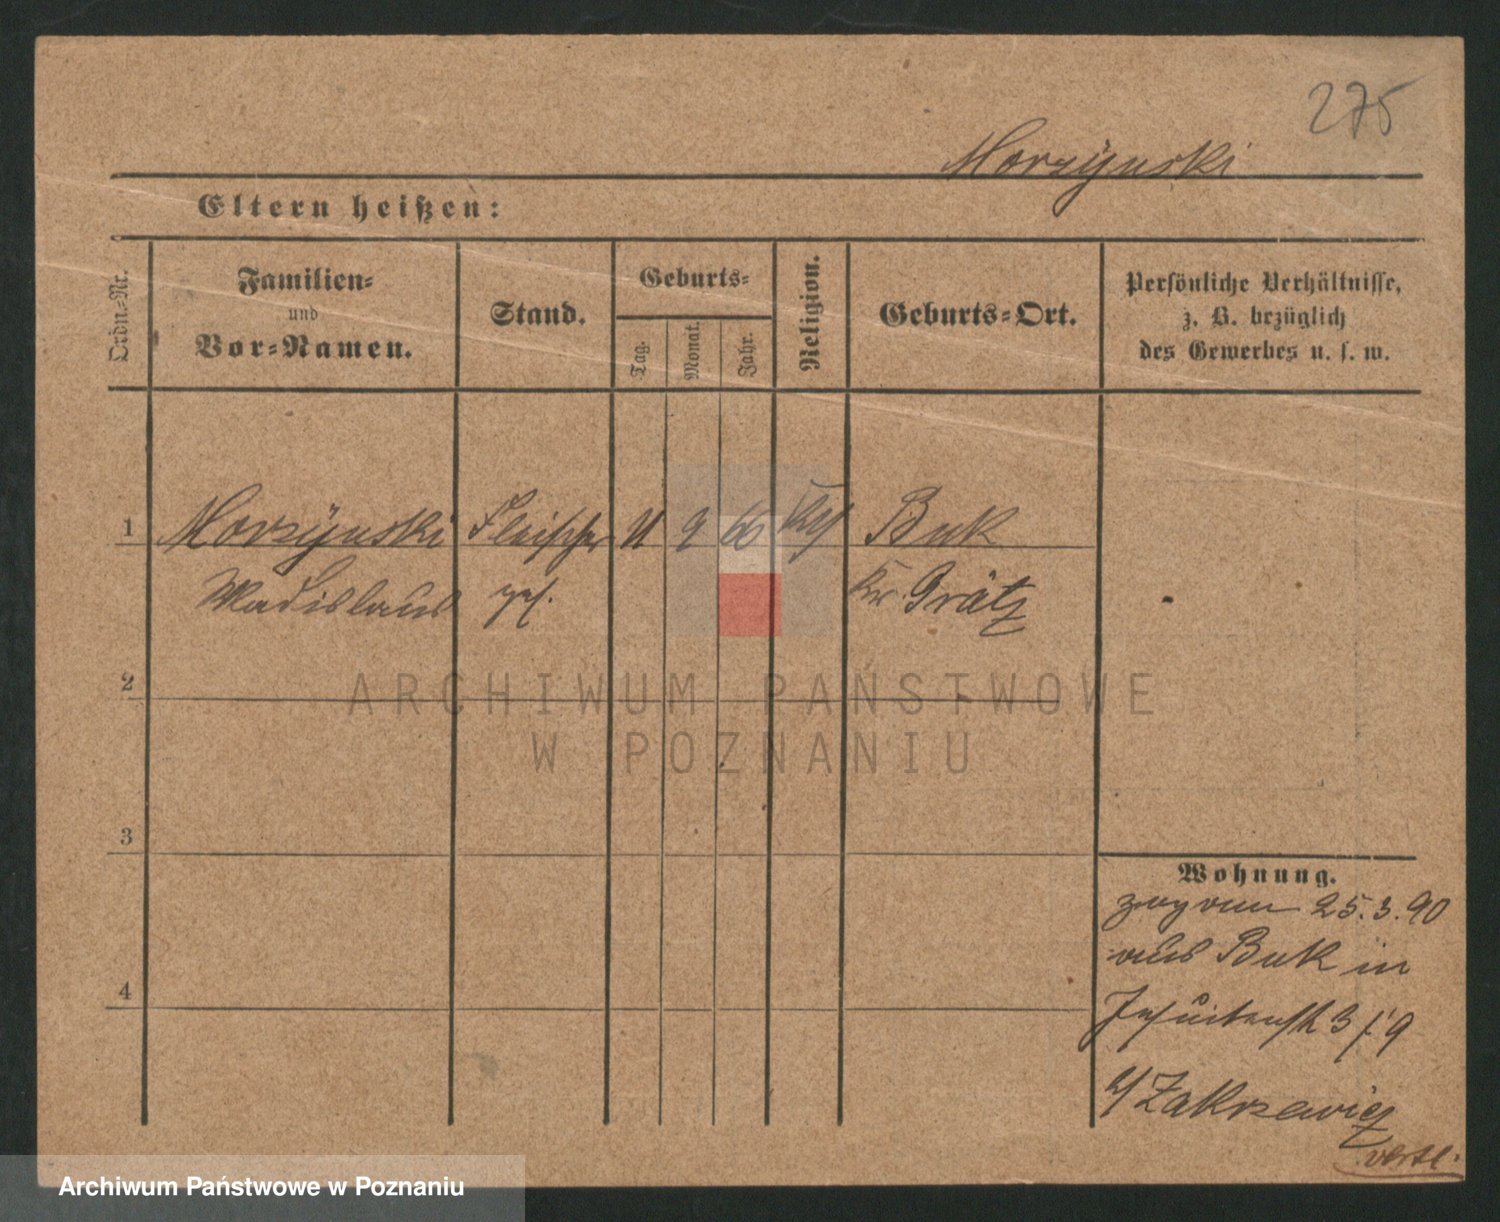 275
Morzÿnski
Eltern heißen:
Ordn.-Nr.
Familien-
und
Vor-Namen.
Stand.
Geburts-
Tag.
Monat.
Jahr.
Religion.
Geburts-Ort.
Persönliche Verhältnisse,
z. B. bezüglich
des Gewerbes u. s. w.
1 Morzÿnski Fleischer 11 9 66 Buk
Wladislaus ges. Kr. Grätz
2
ARCHIWUM PAŃSTWOWE
W POZNANIU
3
4
Wohnung.
zog am 25.3.90
aus Buk in
Jesuitenstr 3 / 9
b/ Zakrzewicz
Archiwum Państwowe w Poznaniu